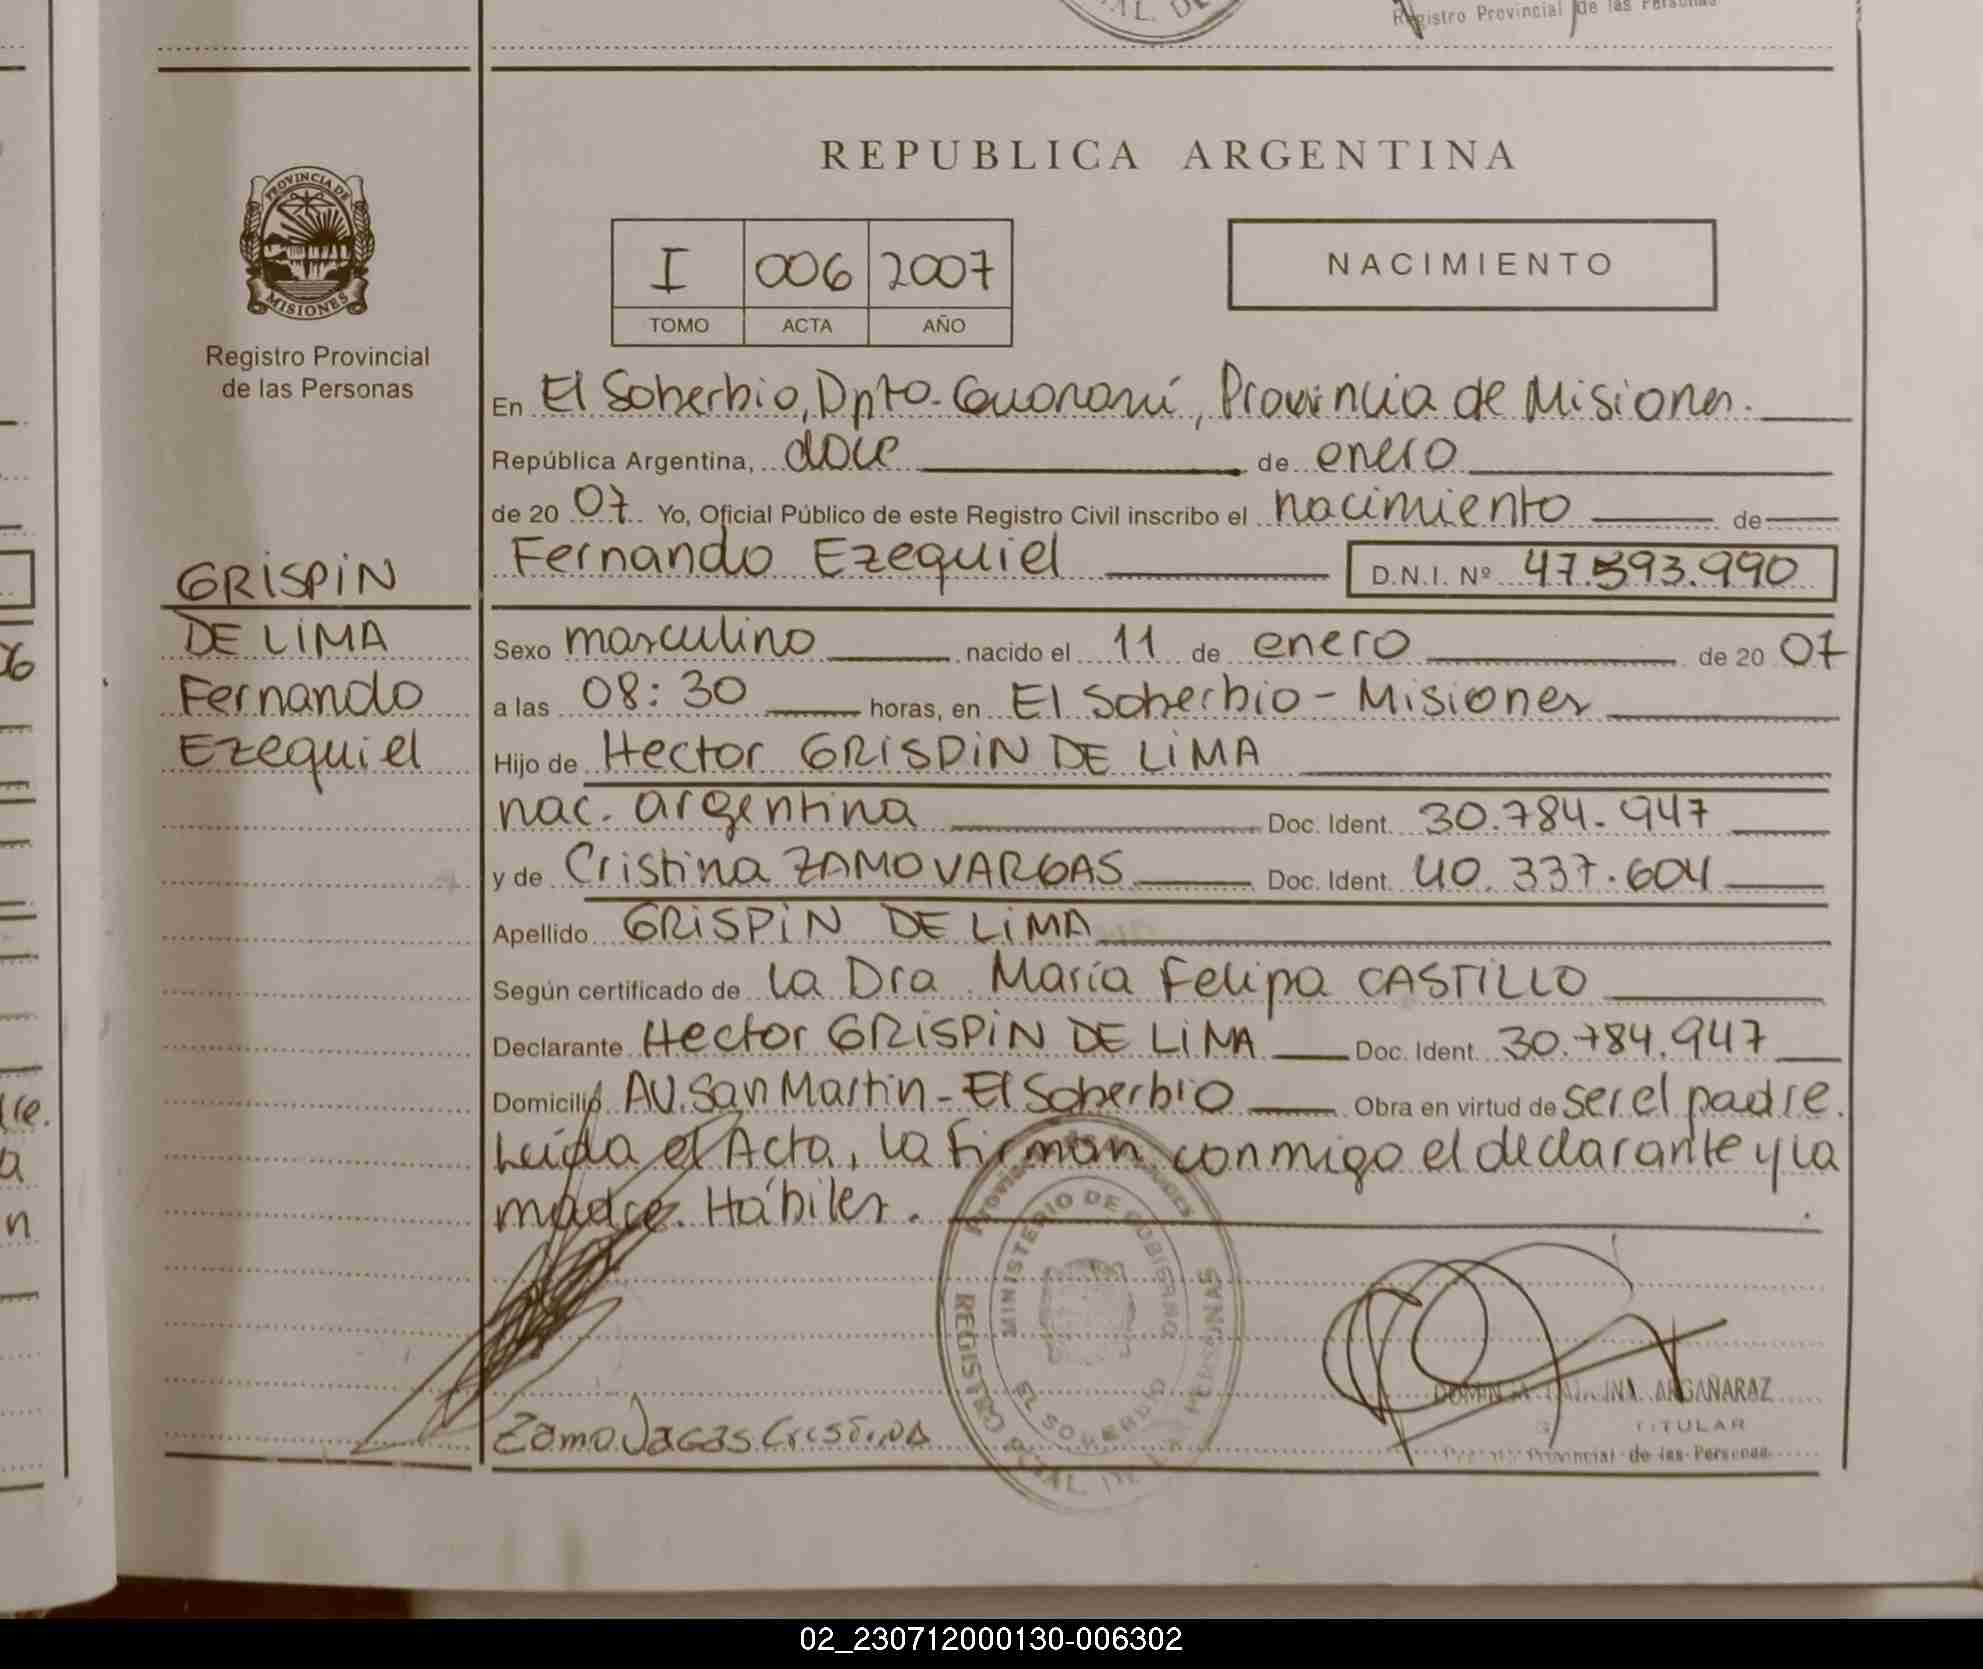 Registro Provincial de las Personas
REPUBLICA ARGENTINA
PROVINCIA DE
MISIONES
Registro Provincial
de las Personas
I 006 2007
TOMO ACTA AÑO
NACIMIENTO
En El Soberbio, Dpto. Guaraní, Provincia de Misiones.
República Argentina, doce de enero
de 20 07 Yo, Oficial Público de este Registro Civil inscribo el nacimiento de
Fernando Ezequiel D.N.I. Nº 47.593.990
GRISPIN
DE LIMA
Fernando
Ezequiel
Sexo masculino nacido el 11 de enero de 20 07
a las 08:30 horas, en El Soberbio - Misiones
Hijo de Hector GRISPIN DE LIMA
nac. argentina Doc. Ident. 30.784.947
y de Cristina ZAMO VARGAS Doc. Ident. 40.337.604
Apellido GRISPIN DE LIMA
Según certificado de la Dra María Felipa CASTILLO
Declarante Hector GRISPIN DE LIMA Doc. Ident. 30.784.947
Domicilio AV. San Martin - El Soberbio Obra en virtud de ser el padre.
Leída el Acta, la firman conmigo el declarante y la
madre. Hábiles.
MINISTERIO DE GOBIERNO
EL SOBERBIO
ARGAÑARAZ
TITULAR
Provincial de las Personas
02_230712000130-006302